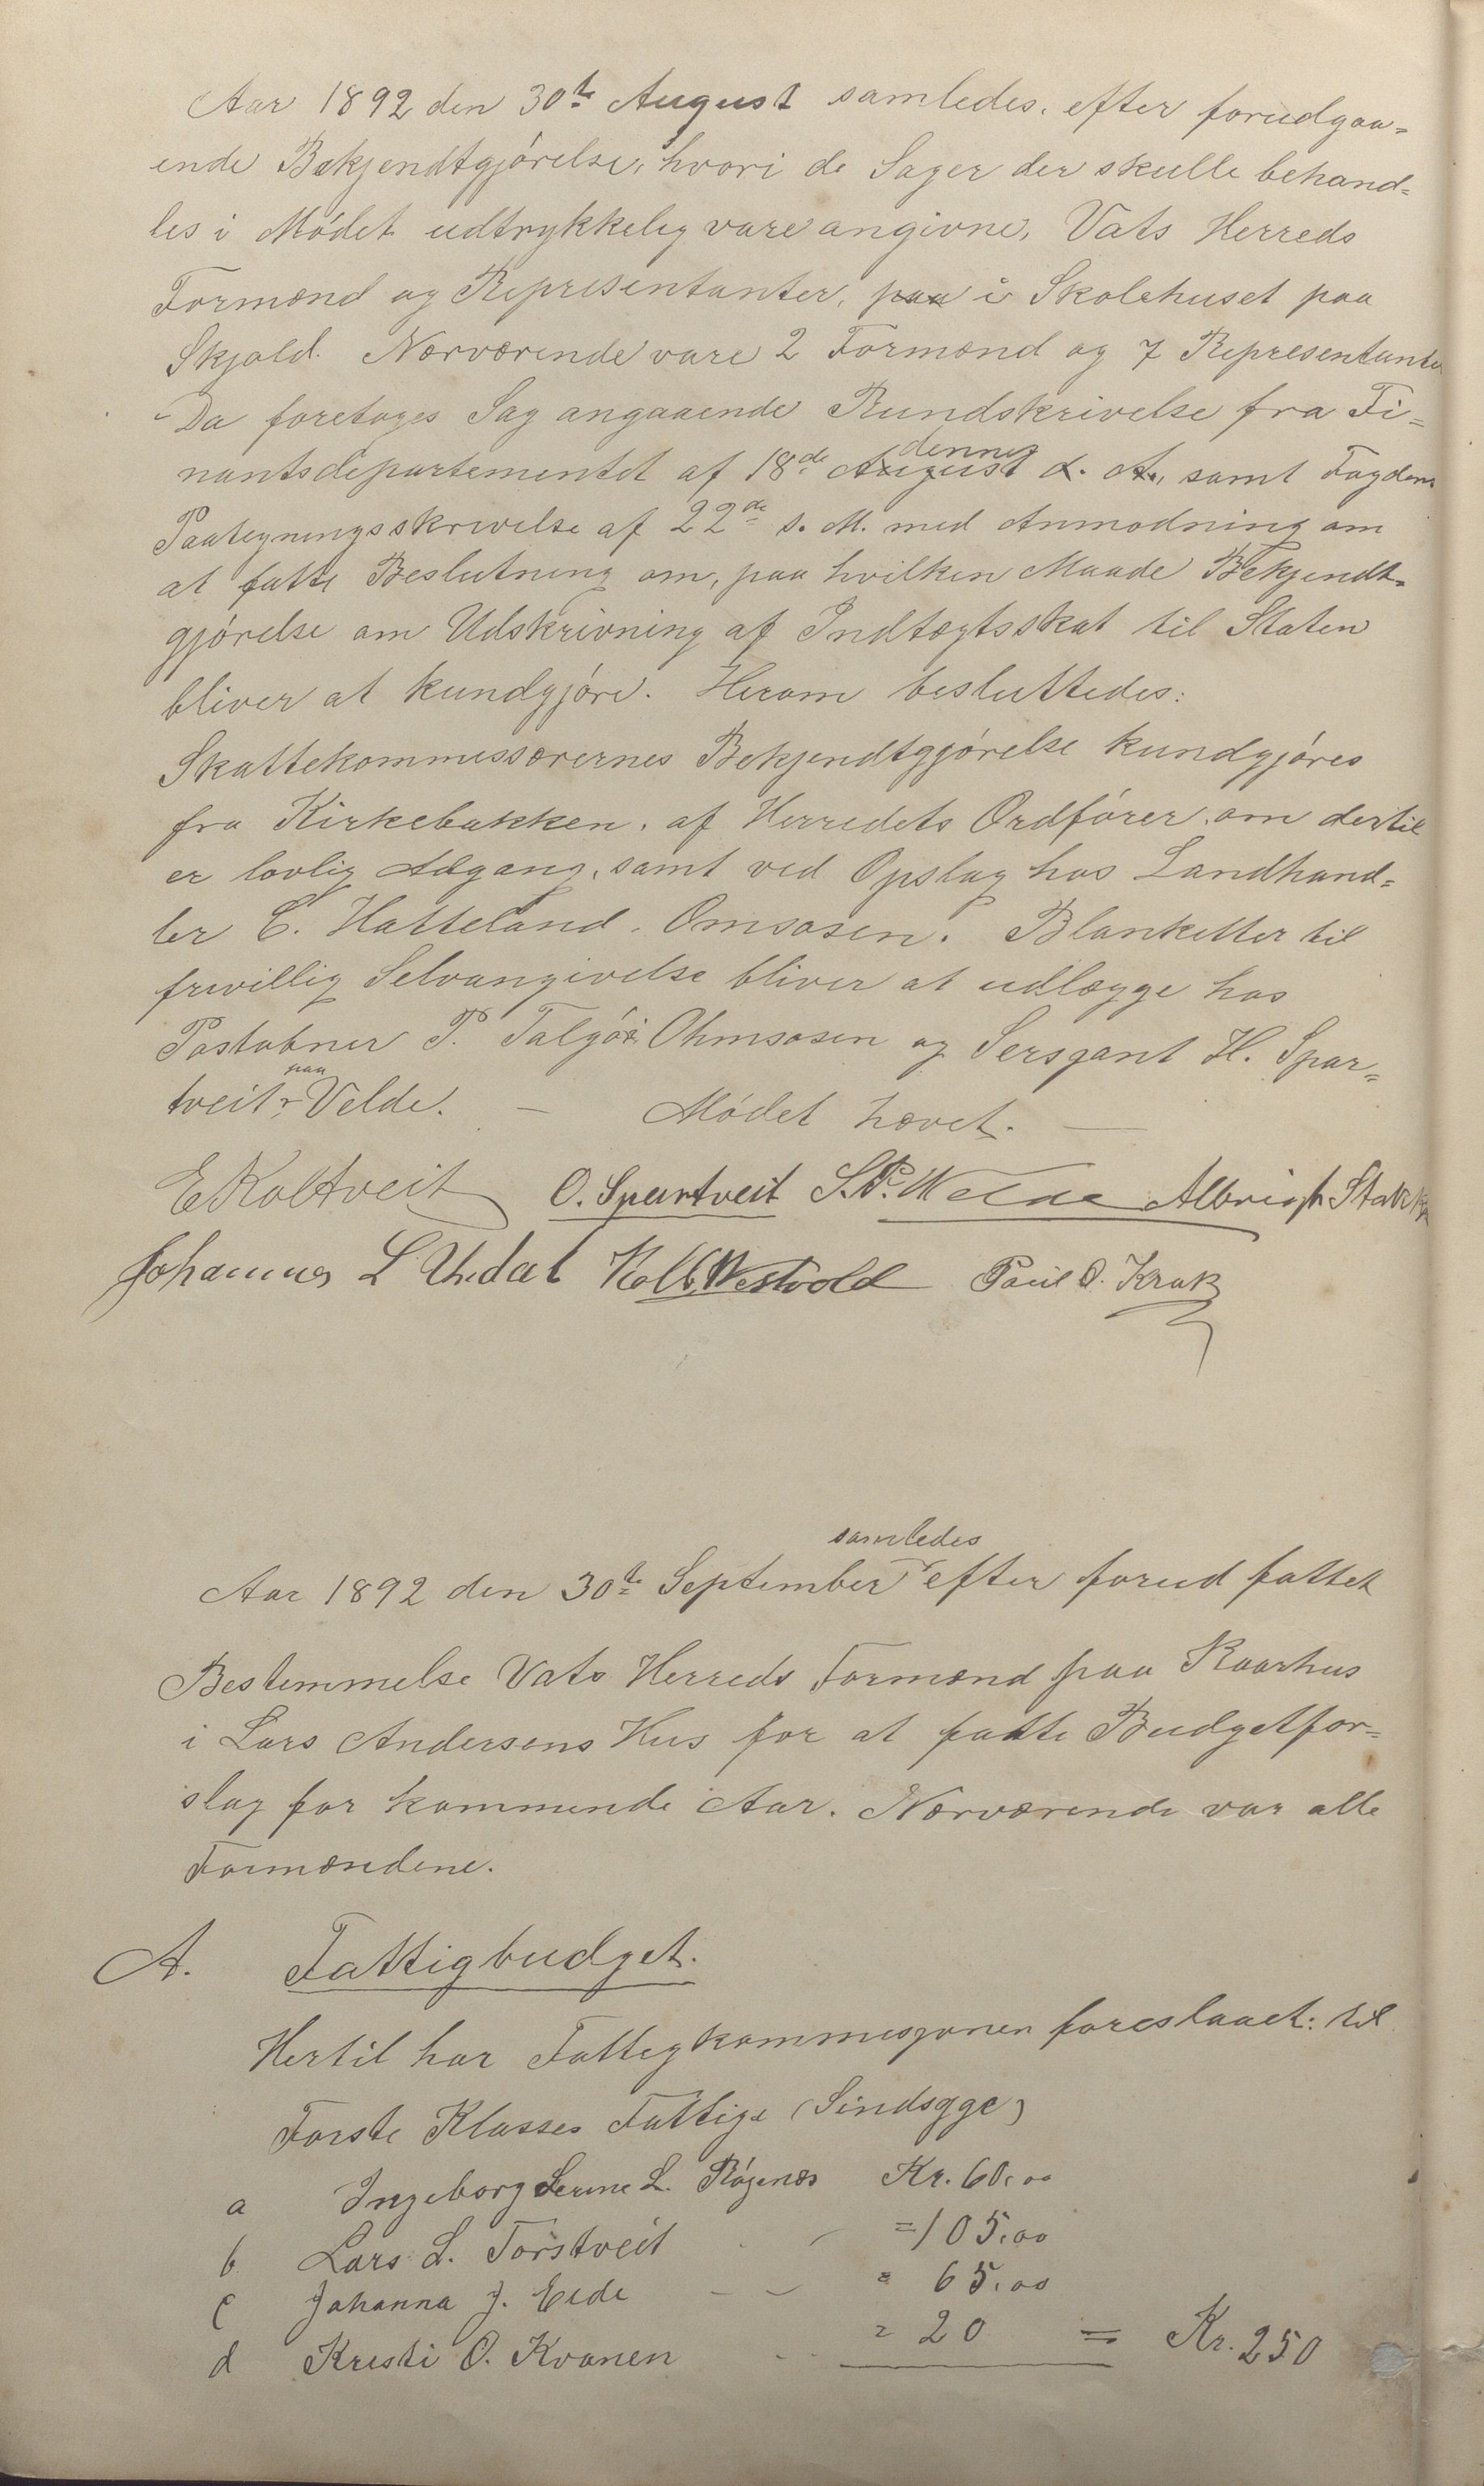 Aar 1892 den 30te August samledes, efter forudgaa=
ende Bekjendtgjörelse, hvori de Sager der skulle behand=
les i Mödet udtrykkelig vare angivne, Vats Herreds
Formænd og Representanter, paa i Skolehuset paa
Skjold. Nærværende vare 2 Formænd og 7 Representanter
Da foretoges Sag angaaende Rundskrivelse fra Fi=
nantsdepartementet af 18de August denne d. A., samt Fogdens
Paategningsskrivelse af 22de s. M. med Anmodning om
at fatte Beslutning om, paa hvilken Maade Bekjendt=
gjörelse om Udskrivning af Indtægtsskat til Staten
bliver at kundgjöre. Herom besluttedes:
Skattekommissærernes Bekjendtggjörelse kundgjöres
fra Kirkebakken, af Herredets Ordförer, om dertil
er lovlig Adgang, samt ved Opslag hos Landhand=
ler C. Hatteland, Omsosen. Blanketter til
frivillig Selvangivelse bliver at udlægge hos
Postabner P. Talgö, Ohmsosen og Sersgant H. Spar=
tveit paa Velde. — Mödet hævet. —
E Koltveit O. Spartveit S. P. Welde Albrigt Stakk
Johannes L Undal Westvold Poul O. Krak
Aar 1892 den 30te September samledes efter forud fattet
Bestemmelse Vats Herreds Formænd paa Raarhus
i Lars Andersens Hus for at fatte Budgetfor=
slag for kommende Aar. Nærværende var alle
Formændene.
A. Fattigbudget.
Hertil har Fattigkommisjonen foreslaaet: til
Förste Klasses Fattige (Sindsyge)
a Ingeborg Serine L. Rögenes Kr. 60,00
b Lars L. Torstveit = 105,00
c Johanna J. Eide = 65,00
d Kristi O. Kvanen = 20 = Kr. 250